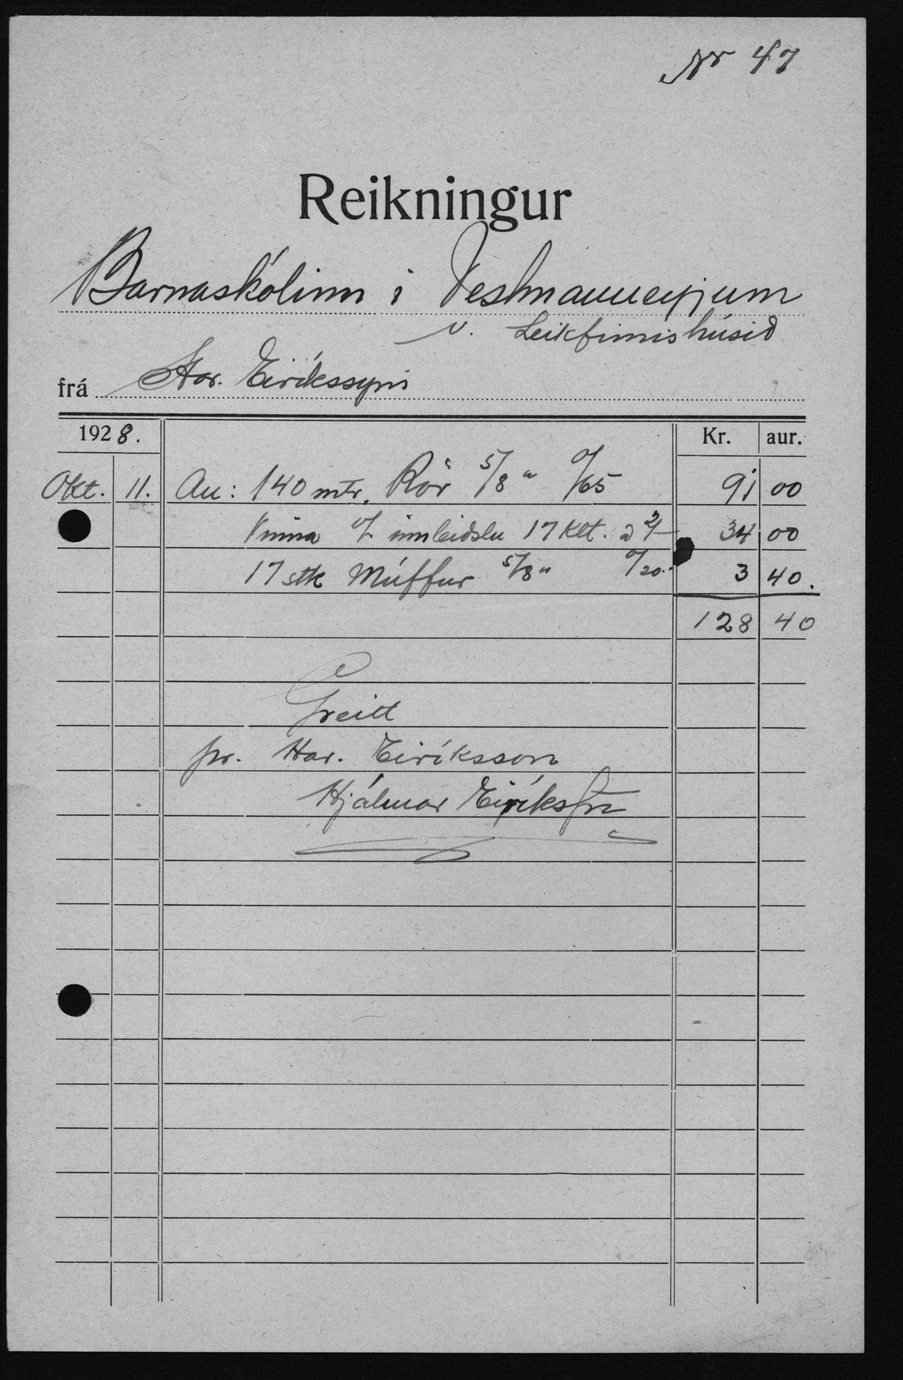 Nr 47
Reikningur
Barnaskólinn i Vestmanneyjum
v. Leikfimishúsið
frá Har. Eiríkssyni
1928. Kr. aur.
Okt. 11. An: 140 mtr. Rör 5/8" 0/65 91 00
Vinna v/ innleiðslu 17 klt. à 2/- 34 00
17 stk Múffur 5/8" 0/20. 3 40.
128 40
Greitt
pr. Har. Eiríksson
Hjálmar Eiríksson